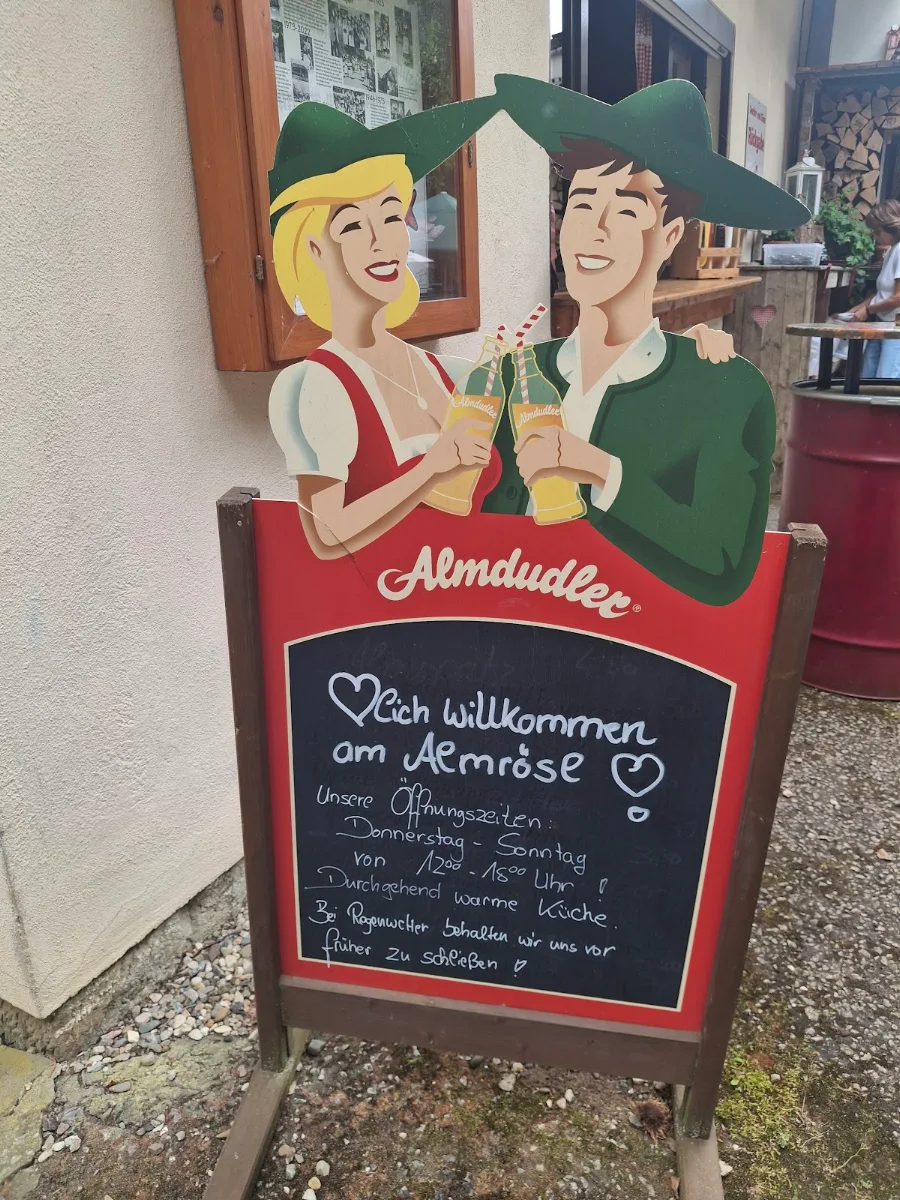 1973-2022
Almdudler
Almdudler
Almdudler®
♡lich willkommen
am Almrösl ♡!
Unsere Öffnungszeiten:
Donnerstag - Sonntag
von 12⁰⁰ - 18⁰⁰ Uhr !
Durchgehend warme Küche.
Bei Regenwetter behalten wir uns vor
früher zu schließen !